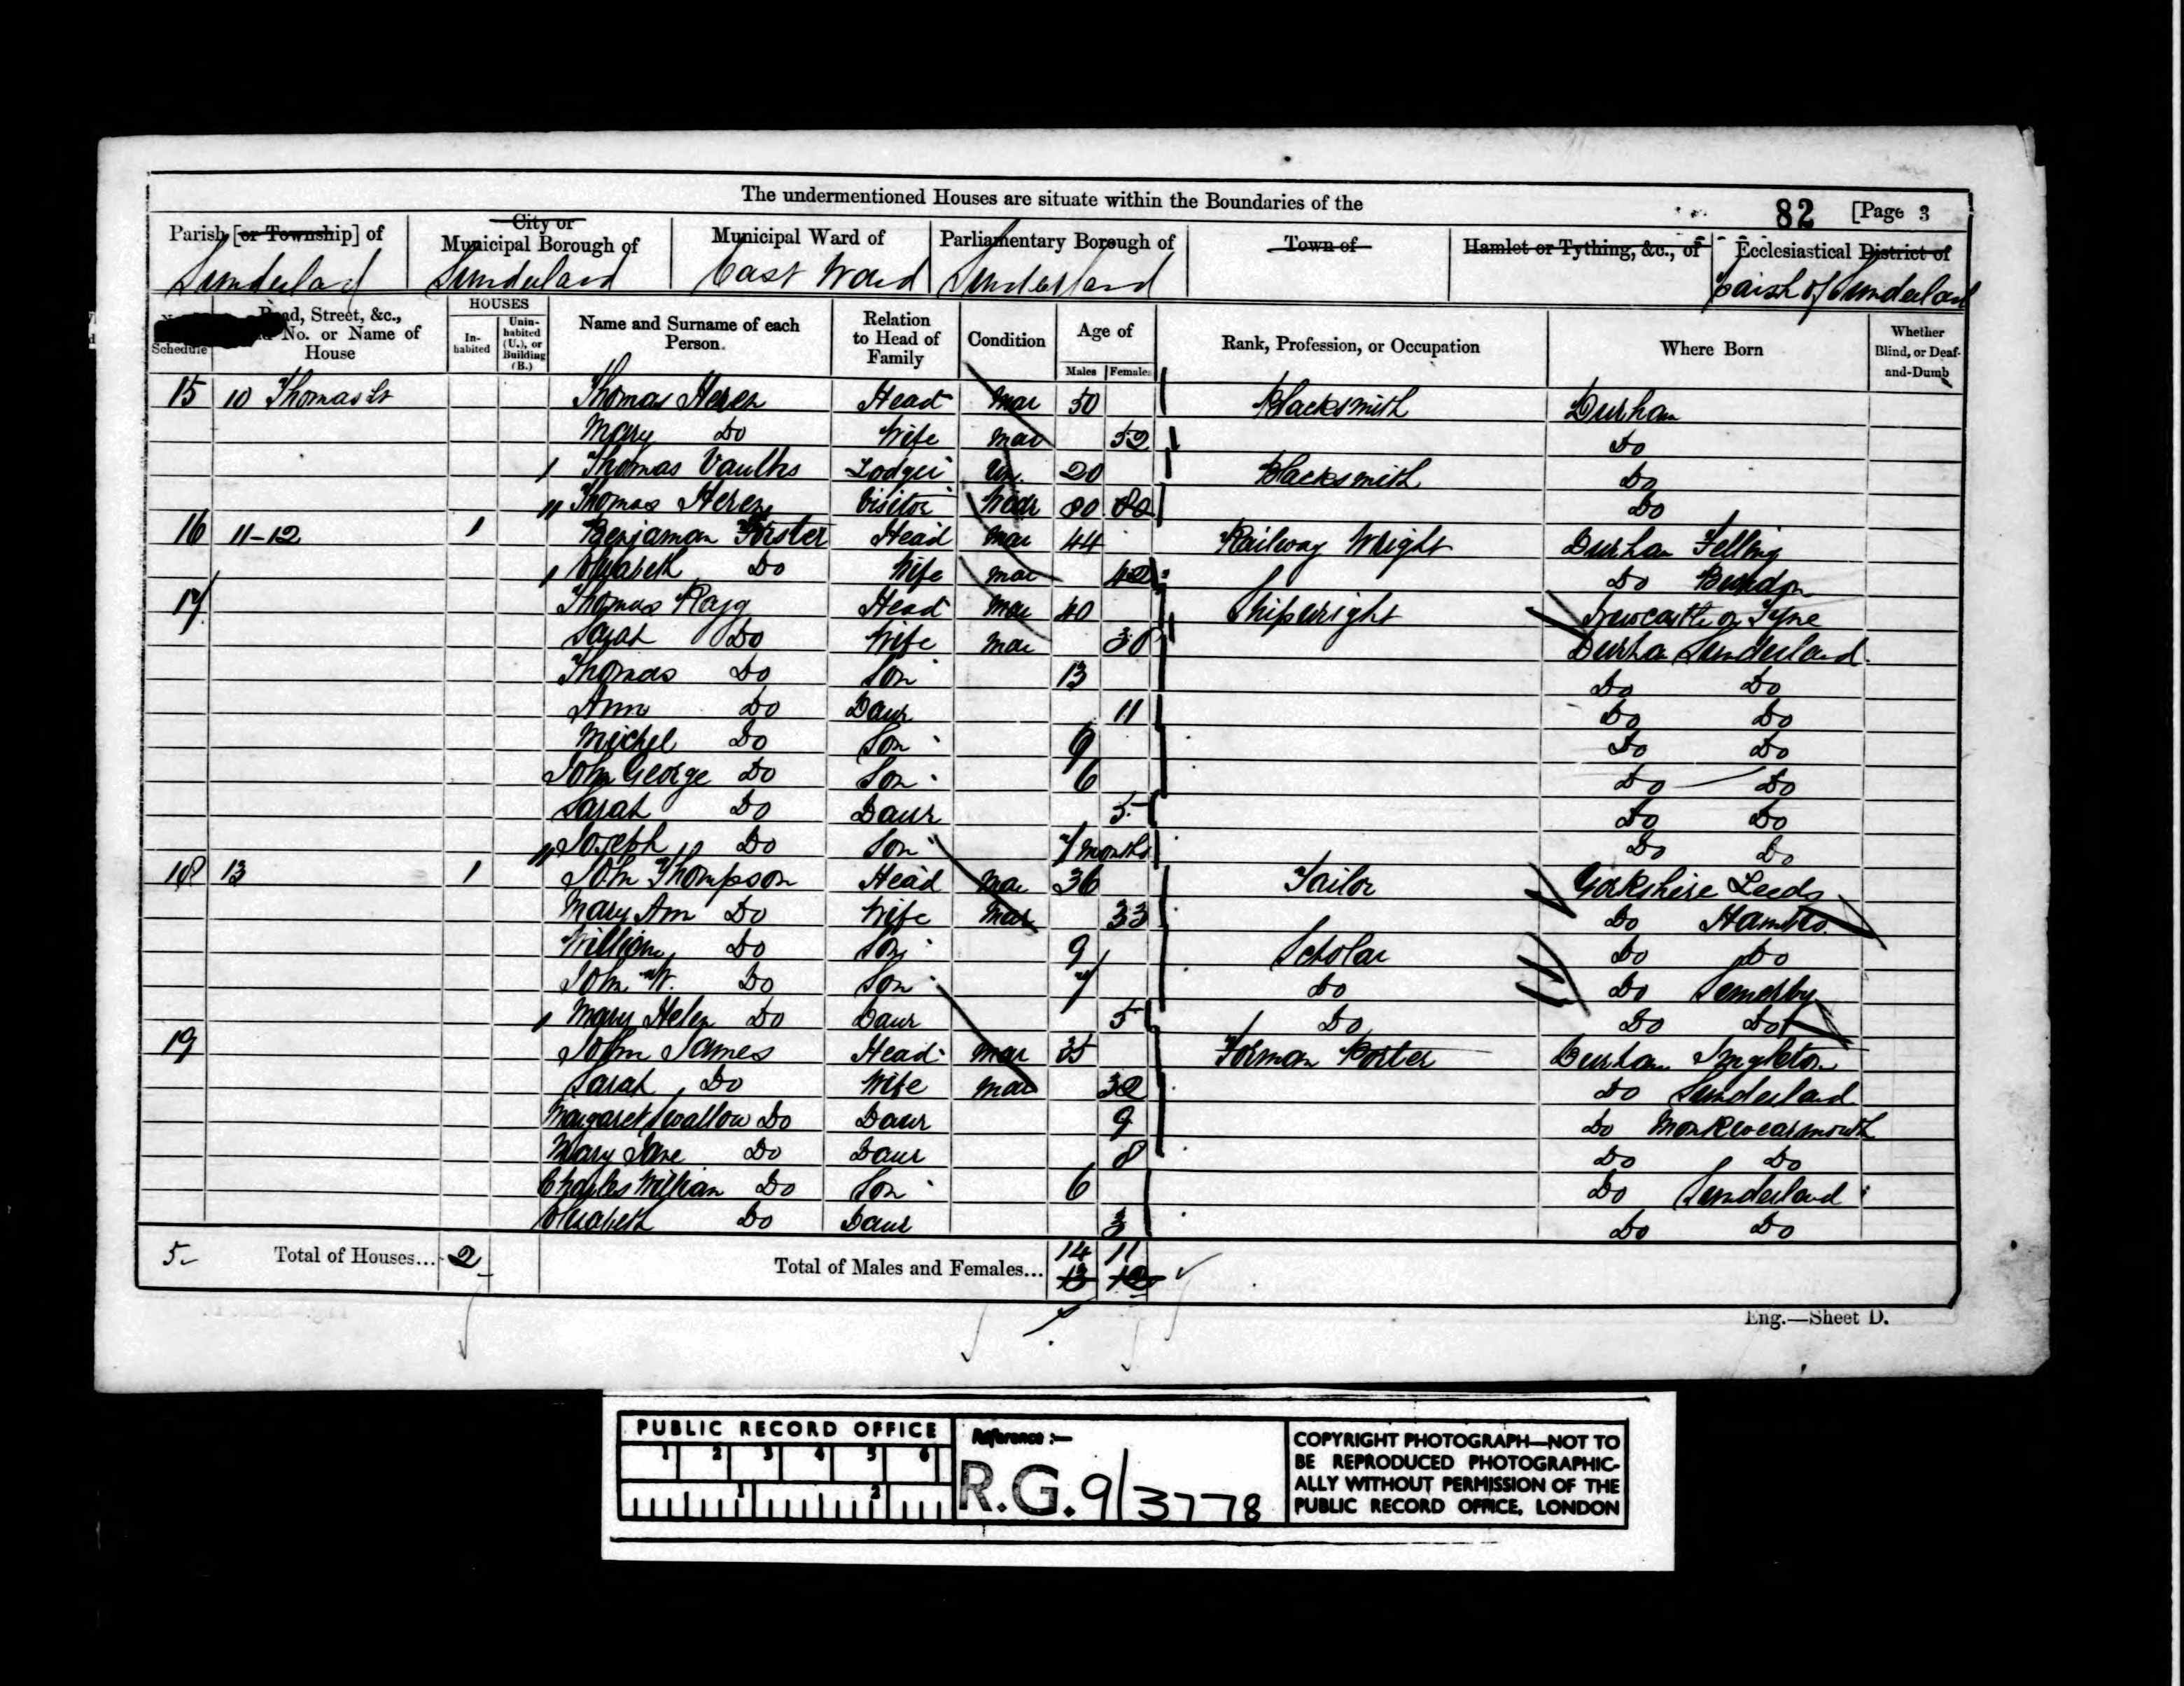 The undermentioned Houses are situate within the Boundaries of the
82 [Page 3
Parish [or Township] of Sunderland
City or Municipal Borough of Sunderland
Municipal Ward of East Ward
Parliamentary Borough of Sunderland
Town of
Hamlet or Tything, &c., of
Ecclesiastical District of Parish of Sunderland
Schedule
Road, Street, &c., No. or Name of House
HOUSES
In-habited
Unin-habited (U.), or Building (B.)
Name and Surname of each Person
Relation to Head of Family
Condition
Age of
Males Females
Rank, Profession, or Occupation
Where Born
Whether Blind, or Deaf-and-Dumb
15 10 Thomas St Thomas Heren Head Mar 50 Blacksmith Durham
Mary Do Wife Mar 52 Do
Thomas Vaulks Lodger Un. 20 Blacksmith Do
Thomas Heren Visitor Widr 80 80 Do
16 11-12 1 Benjaman Forster Head Mar 44 Railway Wright Durham Felling
Elisabeth Do Wife Mar 42 Do
17 Thomas Ragg Head Mar 40 Shipwright Newcastle on Tyne
Sarah Do Wife Mar 38 Durham Sunderland
Thomas Do Son 13 Do Do
Ann Do Daur 11 Do Do
Michel Do Son 9 Do Do
John George Do Son 6 Do Do
Sarah Do Daur 5 Do Do
Joseph Do Son 7 months Do Do
18 13 1 John Thompson Head Mar 36 Tailor Yorkshire Leeds
Mary Ann Do Wife Mar 33 Do
William Do Son 9 Scholar Do Do
John W. Do Son 7 Do Do
Mary Helen Do Daur 5 Do Do Do
19 John James Head Mar 35 Forman Porter Durham
Sarah Do Wife Mar 32 Do Sunderland
Margaret Swallow Do Daur 9 Do Monkwearmouth
Mary Jane Do Daur 8 Do Do
Charles William Do Son 6 Do Sunderland
Elisabeth Do Daur 3 Do Do
5 Total of Houses... 2 Total of Males and Females... 14 11
13 12
Eng.—Sheet D.
PUBLIC RECORD OFFICE
1 2 3 4 5 6
1 2
Reference :—
R.G. 9/3778
COPYRIGHT PHOTOGRAPH—NOT TO
BE REPRODUCED PHOTOGRAPHIC-
ALLY WITHOUT PERMISSION OF THE
PUBLIC RECORD OFFICE, LONDON